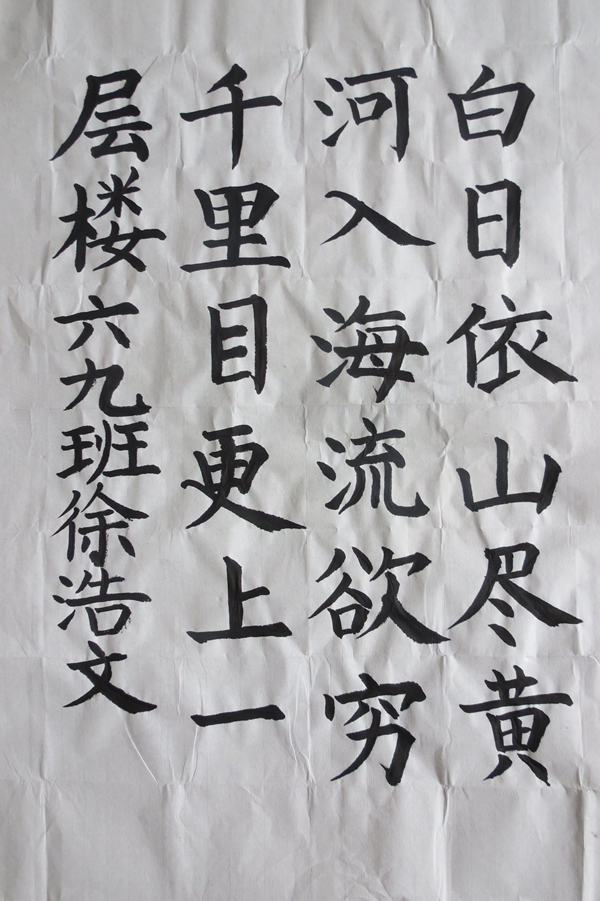 白日依山尽黄
河入海流欲穷
千里目更上一
层楼六九班徐浩文